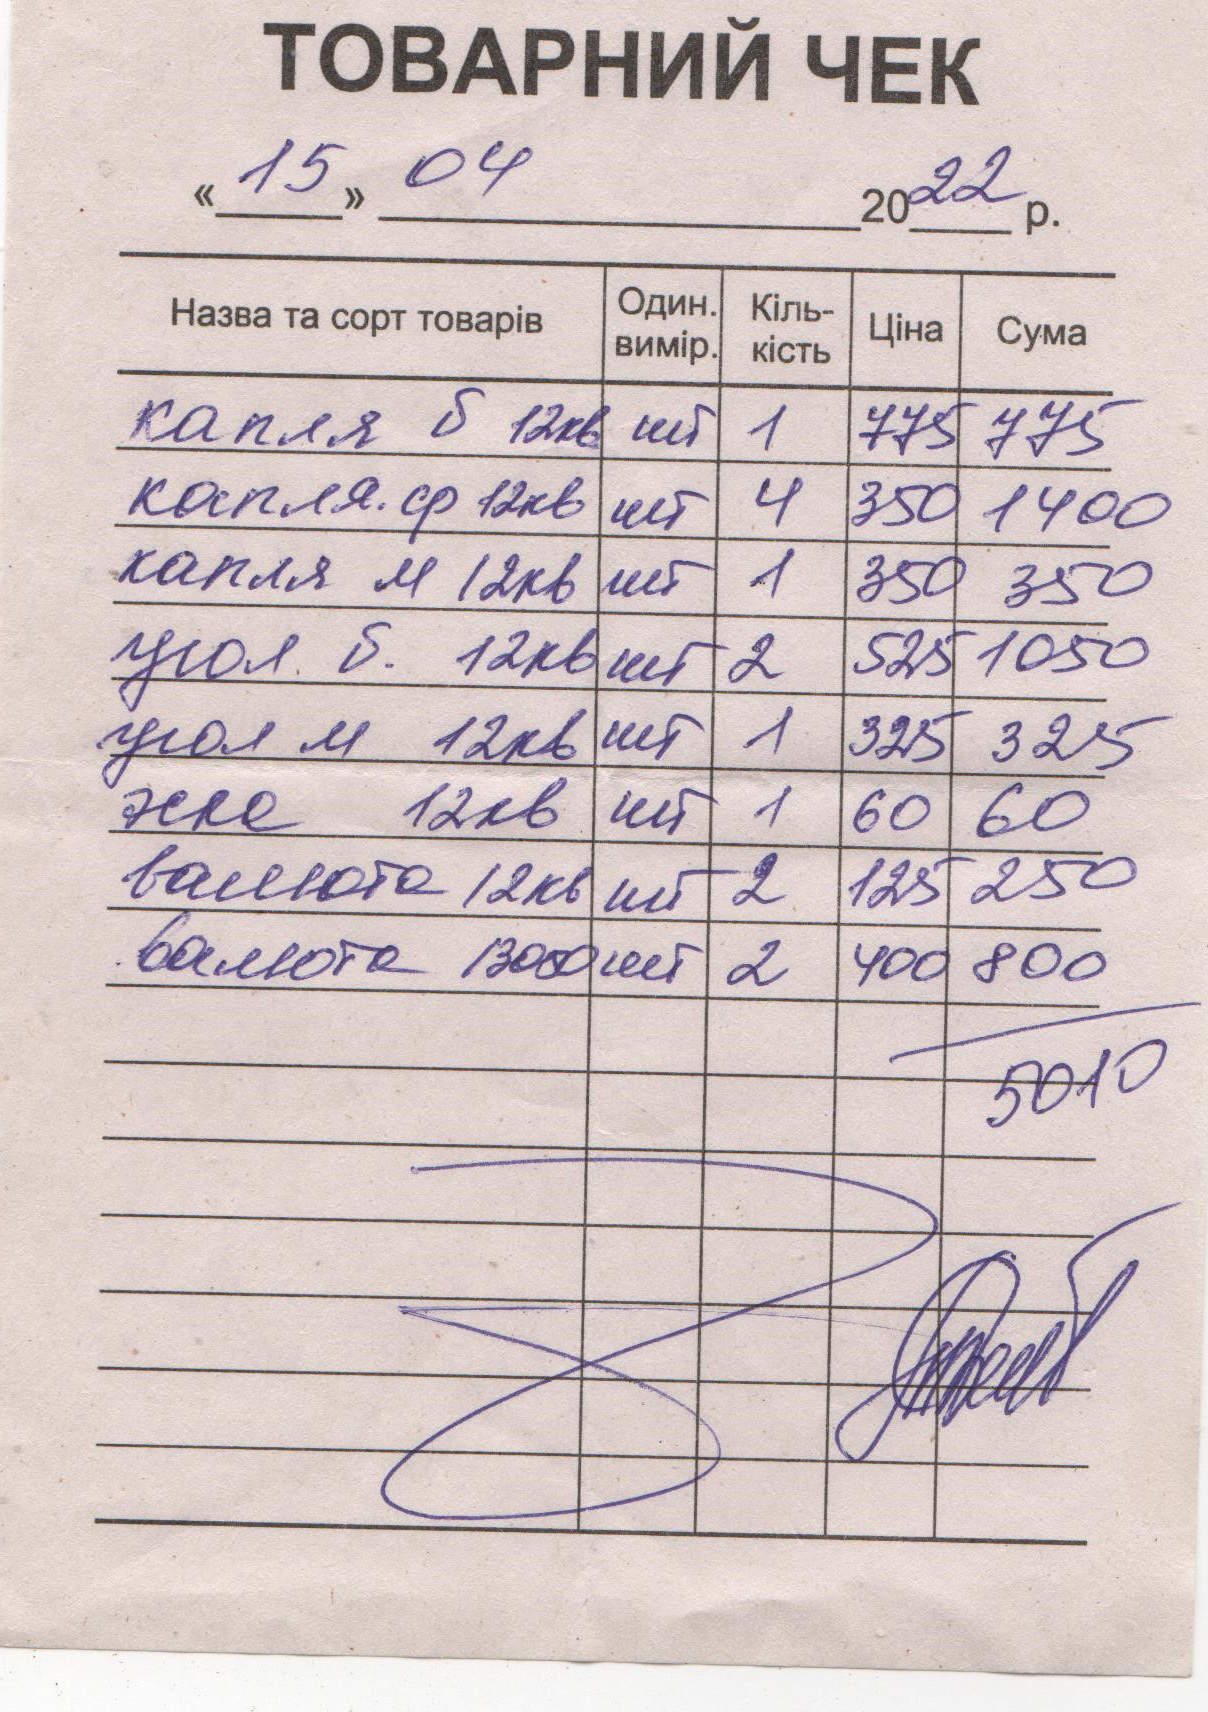 ТОВАРНИЙ ЧЕК
« 15 » 04 2022 р.
Назва та сорт товарів Один. вимір. Кіль-кість Ціна Сума
капля б 12кв шт 1 775 775
капля. ср 12кв шт 4 350 1400
капля м 12кв шт 1 350 350
угол. б. 12кв шт 2 525 1050
угол м 12кв шт 1 325 325
12кв шт 1 60 60
валюта 12кв шт 2 125 250
валюта шт 2 400 800
5010